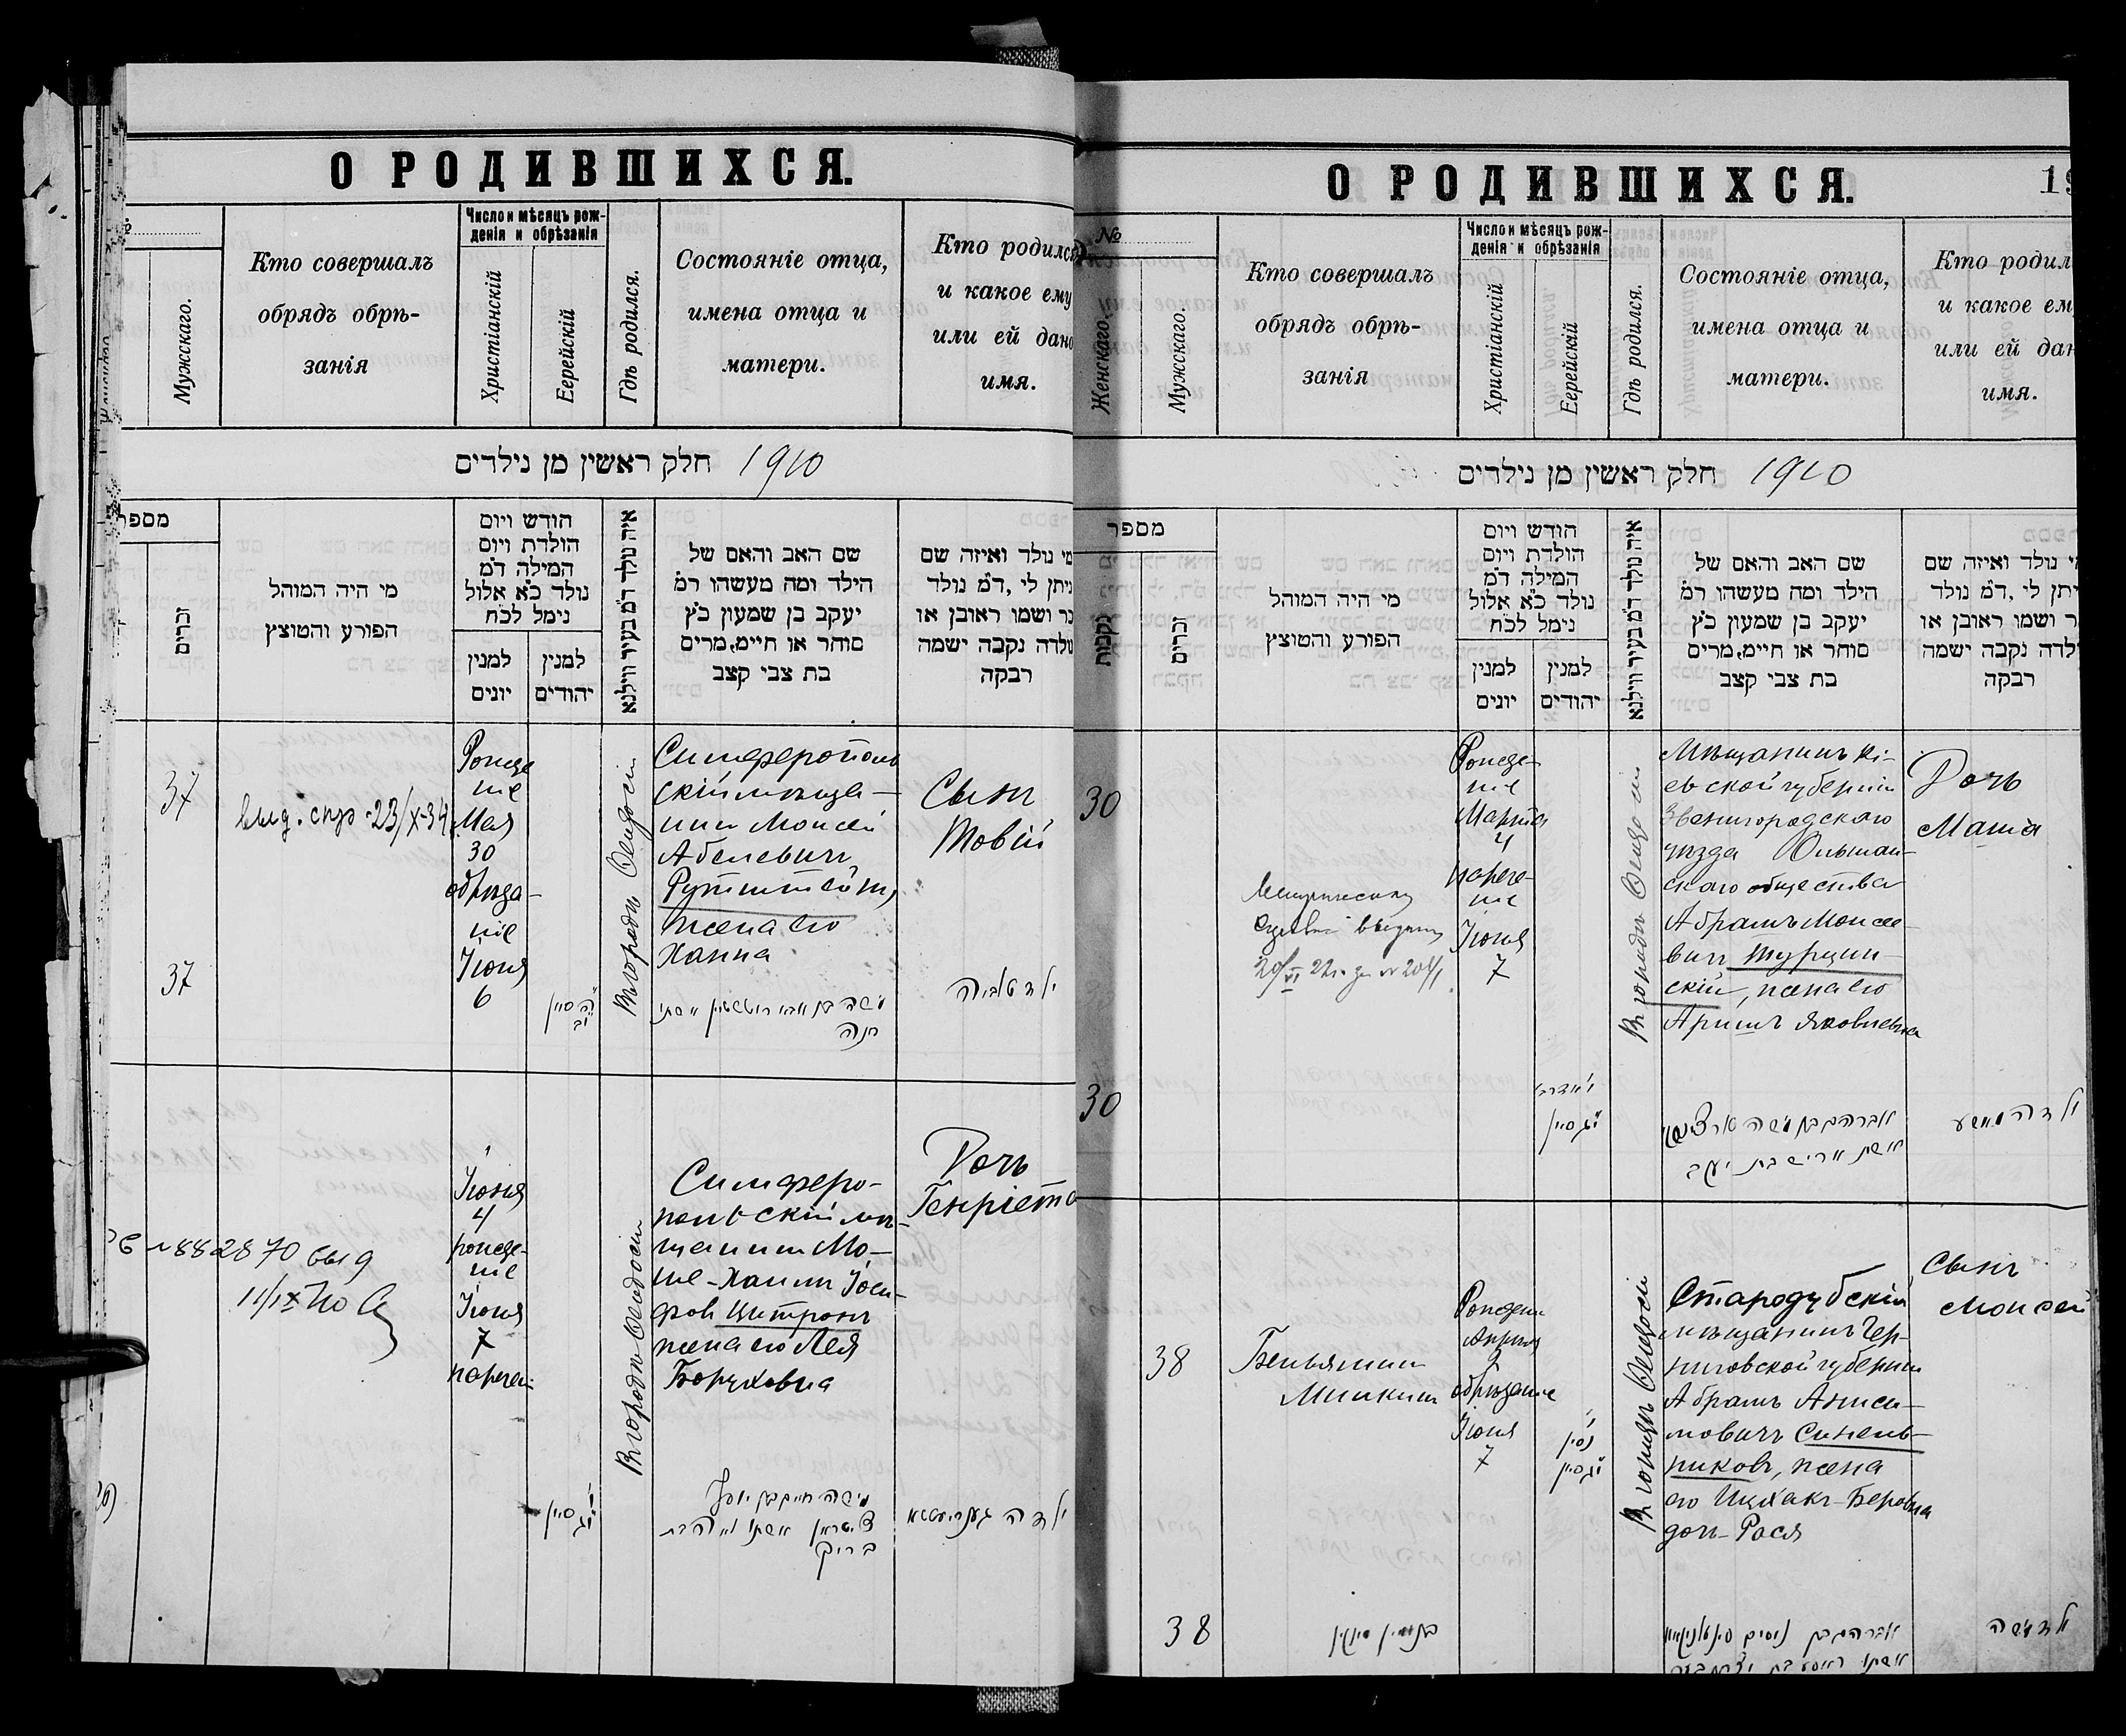 О РОДИВШИХСЯ.
Мужскаго.
Кто совершалъ
обрядъ обрѣ-
занія
Число и мѣсяцъ рож-
денія и обрѣзанія
Христіанскій
Еерейскій
Гдѣ родился.
Состояніе отца,
имена отца и
матери.
Кто родился
и какое ему
или ей дано
имя.
חלק ראשין מן נילדים 1910
מספר
זכרים
מי היה המוהל
הפורע והטוצץ
הודש ויום
הולדת ויום
המילה ד״מ
נולד כ״א אלול
נימל לכ״ח
למנין
יונים
למנין
יהודים
איה נולד ד״מ בעיר ווילנא
שם האב והאם של
הילד ומה מעשהו ר״מ
יעקב בן שמעון כ״ץ
סוחר או חיימ, מרים
בת צבי קצב
מי נולד ואיזה שם
ניתן לי, ד״מ נולד
זכר ושמו ראובן או
נולדה נקבה ישמה
רבקה
37
выд. спр. 23/X-34
Рожде
ніе
Мая
30
обрѣза-
ніе
Іюня
6
Въ городѣ Ѳеодосіи
Симферополь
скій мѣща-
нинъ Моисей
Абелевичъ
Рутштейнъ,
жена его
Ханна
Сынъ
Товій
37
חנה
ילד טוביה
Іюня
4
рожде-
ніе
Іюня
7
нарече-
Въ городѣ Ѳеодосіи
Симферо-
польскій мѣ-
щанинъ Мо-
ше-Хаимъ Іоси-
фовъ Цитронъ
жена его Лея
Боруховна
Дочь
Генріета
882870 выд
י״ג סיון
משה חיים בן יוסף
ציטראן אשתו לאה בת
ברוך
ילדה גענריעטטא
О РОДИВШИХСЯ.
19
№
Женскаго.
Мужскаго.
Кто совершалъ
обрядъ обрѣ-
занія
Число и мѣсяцъ рож-
денія и обрѣзанія
Христіанскій
Еерейскій
Гдѣ родился.
Состояніе отца,
имена отца и
матери.
Кто родил
и какое ем
или ей дан
имя.
חלק ראשין מן נילדים 1910
מספר
נקבות
זכרים
מי היה המוהל
הפורע והטוצץ
הודש ויום
הולדת ויום
המילה ד״מ
נולד כ״א אלול
נימל לכ״ח
למנין
יונים
למנין
יהודים
איה נולד ד״מ בעיר ווילנא
שם האב והאם של
הילד ומה מעשהו ר״מ
יעקב בן שמעון כ״ץ
סוחר או חיימ, מרים
בת צבי קצב
י נולד ואיזה שם
יתן לי, ד״מ נולד
ר ושמו ראובן או
לדה נקבה ישמה
רבקה
30
Рожде-
ніе
Марта
4
нарече-
ніе
Іюня
7
Въ городѣ Ѳеодосіи
Мѣщанинъ Кі-
евской губерніи
Звенигородскаго
уѣзда Ольшан-
скаго общества
Абрамъ Моисее
вичъ Турчин-
скій, жена его
Аришъ Яковлевна
Дочь
Маша
30
י״ג סיון
ילדה מאשע
38
Беньяминъ
Минкинъ
Рожден
Апрѣля
обрѣзаніе
Іюня
7
י״ג סיון
Въ городѣ Ѳеодосіи
Стародубскій
мѣщанинъ Чер-
ниговской губерніи
Абрамъ Аниси-
мовичъ Синель-
никовъ, жена
его Ицхакъ-Беровна
дон-Рася
Сынъ
Моисей
38
בנימין מינקין
ילד משה